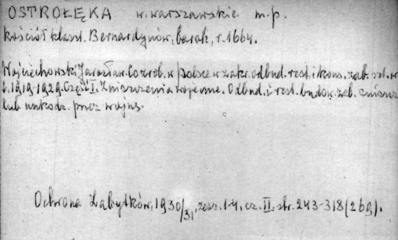 OSTROŁĘKA w. warszawskie m.p.
kościół klaszt. Bernardynów, barok, r. 1664.
Wojciechowski Jarosław. Co zrob. w Polsce w zakr. odbud. rest. i kons. zab. szt. w
l. 1919-1929. Część I. Zniszczenia wojenne. Odbud. i rest. budow. zab. zniszcz.
lub uszkodz. przez wojnę.
Ochrona Zabytków, 1930/31, zesz. 1-4, cz. II. str. 243-318 (269).